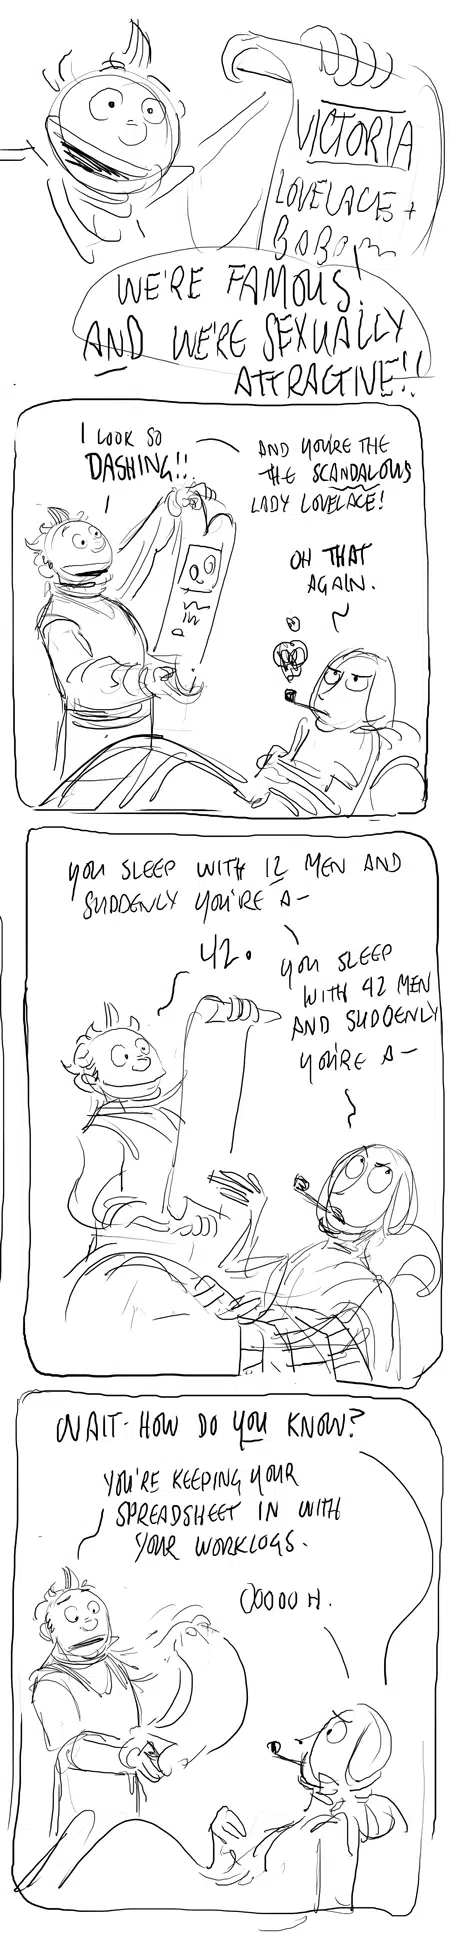 VICTORIA
LOVELACE +
WE'RE FAMOUS!
AND WE'RE SEXUALLY
ATTRACTIVE!!
I LOOK SO
DASHING!!
AND YOU'RE THE
THE SCANDALOUS
LADY LOVELACE!
OH THAT
AGAIN.
YOU SLEEP WITH 12 MEN AND
SUDDENLY YOU'RE A-
42.
YOU SLEEP
WITH 42 MEN
AND SUDDENLY
YOU'RE A-
WAIT- HOW DO YOU KNOW?
YOU'RE KEEPING YOUR
SPREADSHEET IN WITH
YOUR WORKLOGS.
OOOOOH.